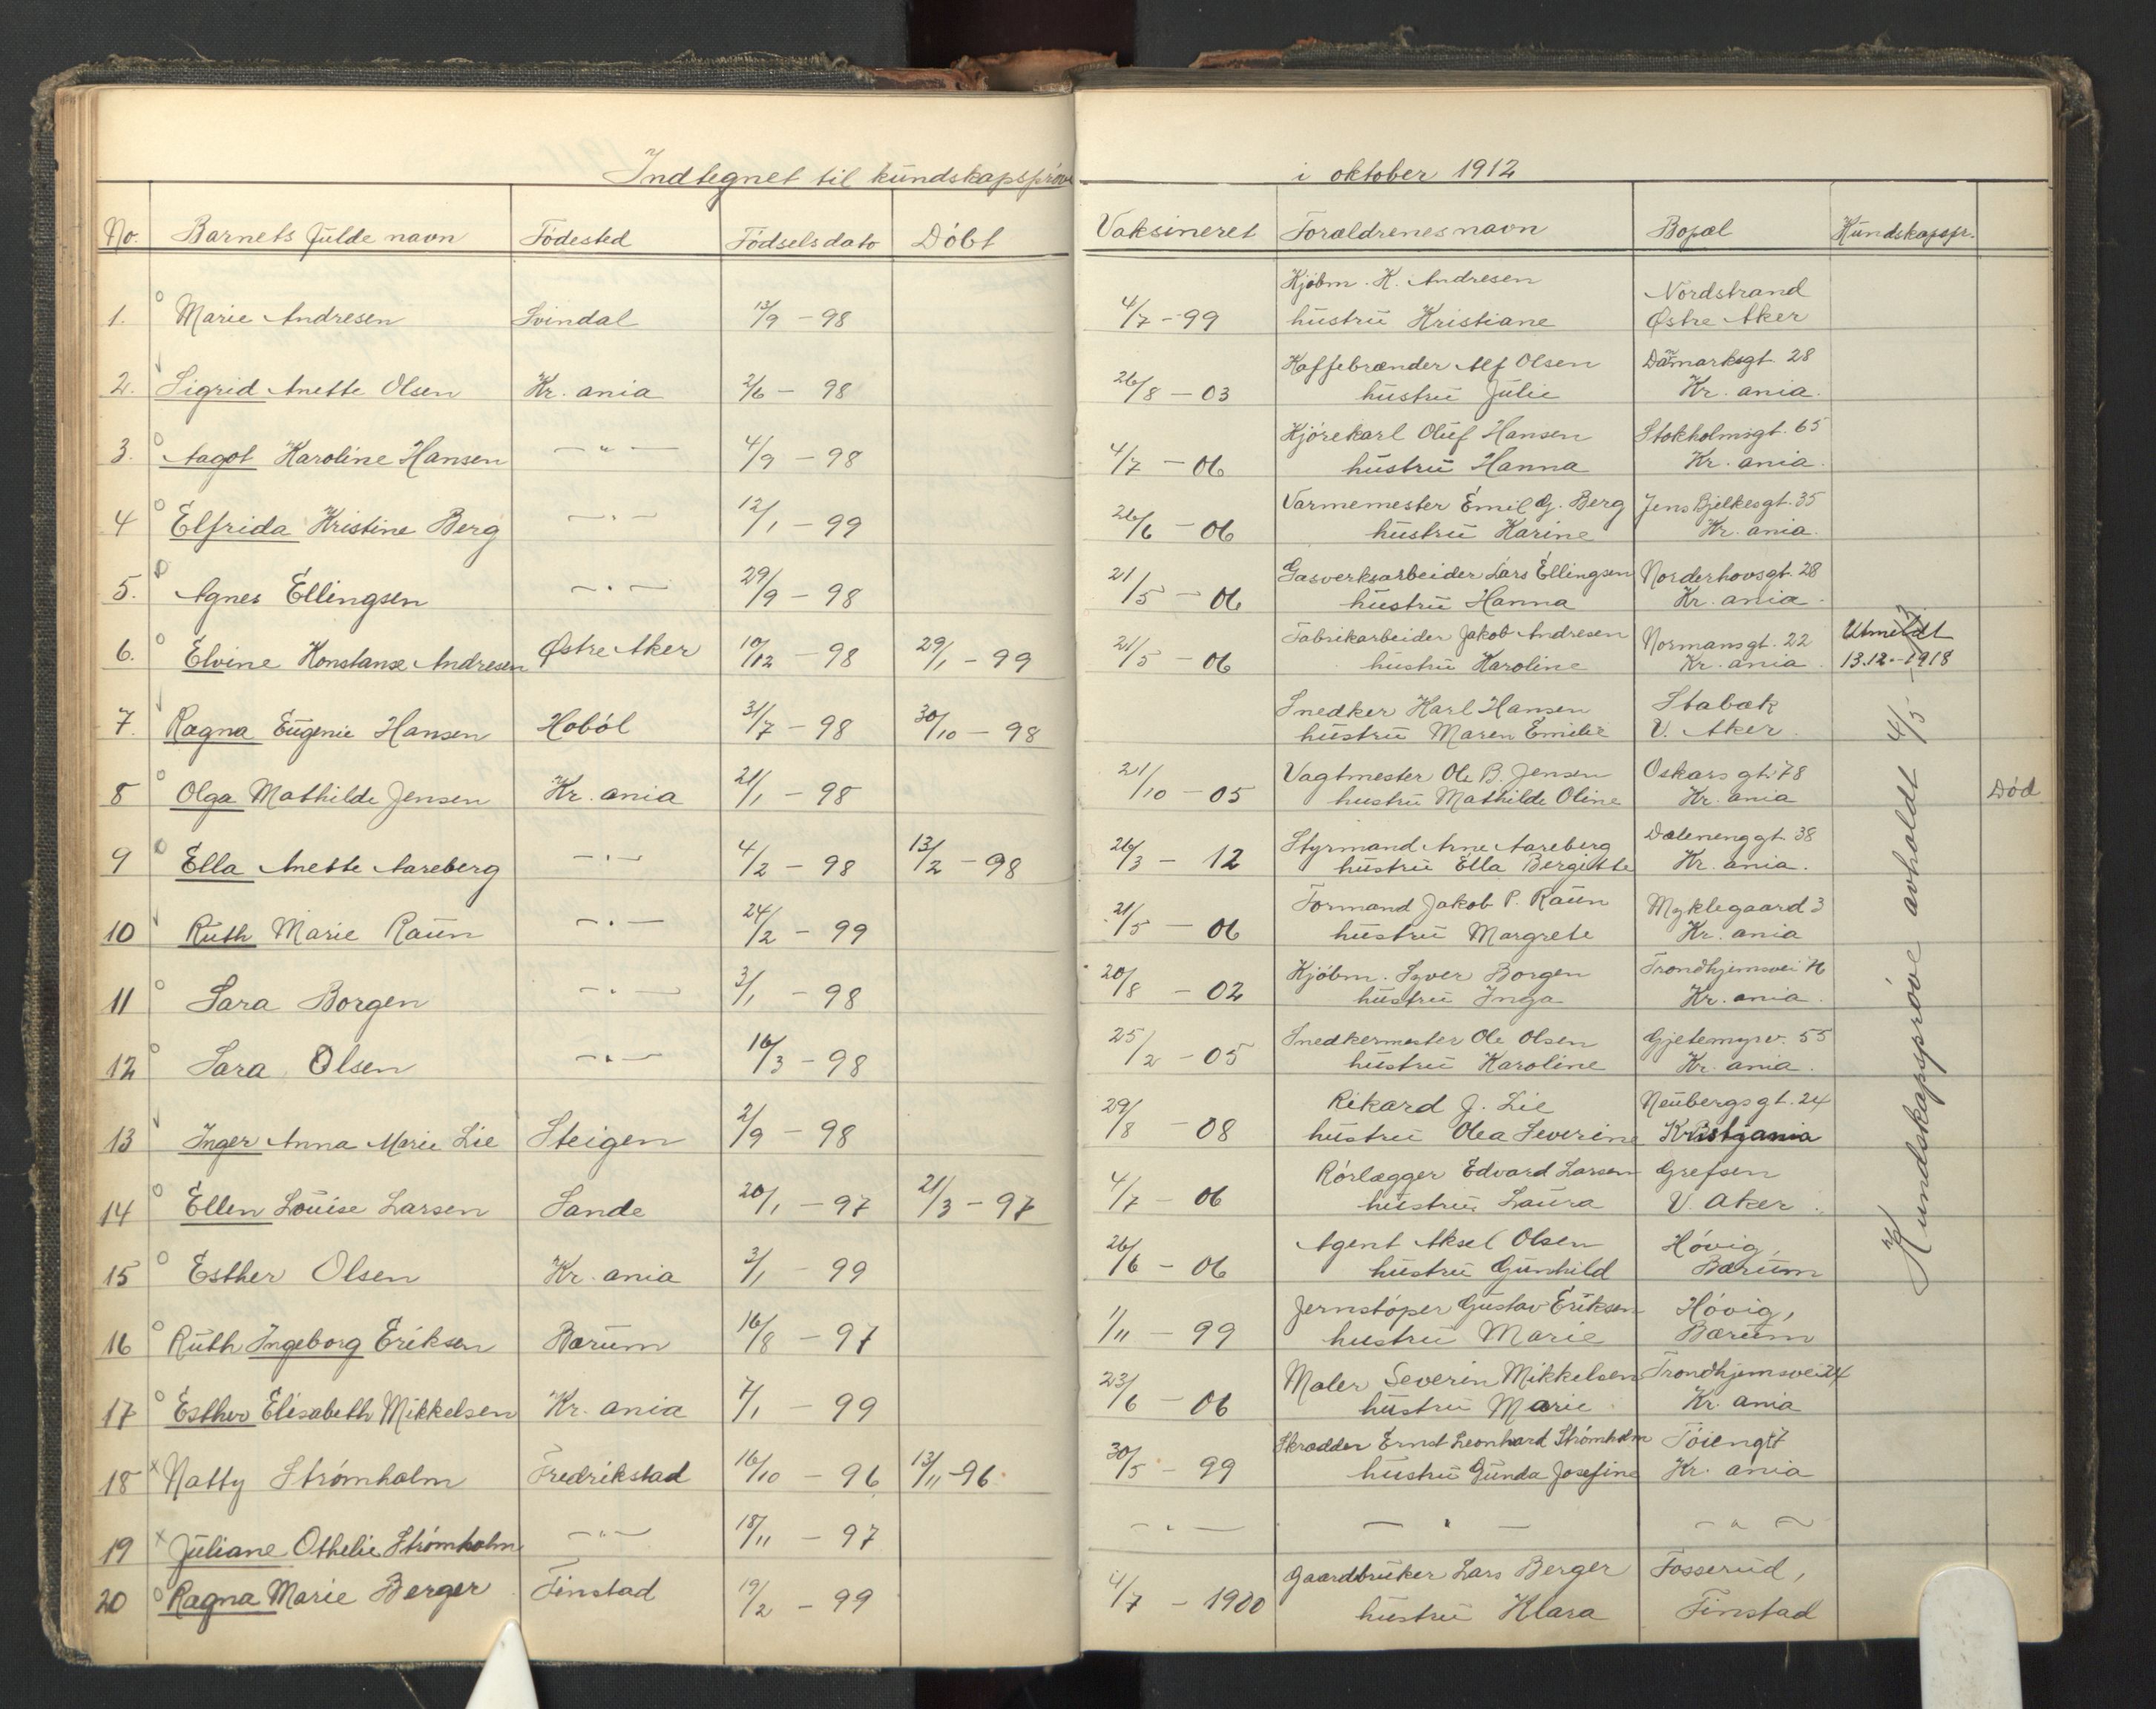 Indtegnet til kundskapsprøve i oktober 1912
No. Barnets fulde navn Födested Födselsdato Döbt Vaksineret Forældrenes navn Bopæl Kundskapspr.
1. Marie Andresen Svindal 13/9 - 98 4/7 - 99 Kjöbm. K. Andresen Nordstrand
hustru Kristiane Østre Aker
2. Sigrid Anette Olsen Kr. ania 2/6 - 98 26/8 - 03 Kaffebrænder Alf Olsen Danmarksgt. 28
hustru Julie Kr. ania.
3. Aagot Karoline Hansen - " - 4/9 - 98 4/7 - 06 Kjörekarl Oluf Hansen Stokholmsgt. 65
hustru Hanna Kr. ania.
4 Elfrida Kristine Berg - " - 12/1 - 99 26/6 - 06 Varmemester Emil G. Berg Jens Bjelkesgt. 35
hustru Karine Kr. ania.
5. Agnes Ellingsen - " - 29/9 - 98 21/5 - 06 Gasverksarbeider Lars Ellingsen Norderhovsgt. 28
hustru Hanna Kr. ania.
6. Elvine Konstanse Andresen Østre Aker 10/12 - 98 29/1 - 99 21/5 - 06 Fabrikarbeider Jakob Andresen Normansgt. 22 Utmeldt
hustru Karoline Kr. ania 13.12.-1918
7. Ragna Eugenie Hansen Haböl 31/7 - 98 30/10 - 98 Snedker Karl Hansen Stabæk
hustru Maren Emilie V. Aker.
8 Olga Mathilde Jensen Kr. ania 21/1 - 98 21/10 - 05 Vagtmester Ole B. Jensen Oskars gt. 78
hustru Mathilde Oline Kr. ania Död
9 Ella Anette Aareberg - " - 4/2 - 98 13/2 - 98 26/3 - 12 Styrmand Arne Aareberg Dælenenggt. 38
hustru Ella Bergitte Kr. ania.
10 Ruth Marie Raun - " - 24/2 - 99 21/5 - 06 Formand Jakob P. Raun Myklegaard 3
hustru Margrete Kr. ania
11 Sara Borgen - " - 3/1 - 98 20/8 - 02 Kjöbm. Syver Borgen Trondhjemsvei
hustru Inga Kr. ania.
12 Sara Olsen - " - 16/3 - 98 25/2 - 05 Snedkermester Ole Olsen Gjetemyrv. 55
hustru Karoline Kr. ania.
13 Inger Anna Marie Lie Steigen 2/9 - 98 29/8 - 08 Rikard J. Lie Neubergsgt. 24
hustru Olea Severine Kristjania
14 Ellen Louise Larsen Sande 20/1 - 97 21/3 - 97 4/7 - 06 Rörlægger Edvard Larsen Grefsen
hustru Laura V. Aker.
15 Esther Olsen Kr. ania 3/1 - 99 26/6 - 06 Agent Aksel Olsen Hövig,
hustru Gunhild Bærum
16 Ruth Ingeborg Eriksen Bærum 16/8 - 97 1/11 - 99 Jernstöper Gustav Eriksen Hövig,
hustru Marie Bærum
17 Esther Elisabeth Mikkelsen Kr. ania 7/1 - 99 23/6 - 06 Maler Severin Mikkelsen Trondhjemsvei 24
hustru Marie Kr. ania
18 Natty Strömholm Fredrikstad 16/10 - 96 13/11 - 96 30/5 - 99 Skrædder Ernst Leonhard Strömholm Töiengt 7
hustru Gunda Josefine Kr. ania
19 Juliane Othelie Strömholm - " - 18/11 - 97 - " - - " - - " -
20 Ragna Marie Berger Finstad 19/2 - 99 4/7 - 1900 Gaardbruker Lars Berger Fosserud,
hustru Klara Finstad
Kundskapsprøve avholdt 4/5 - 13.